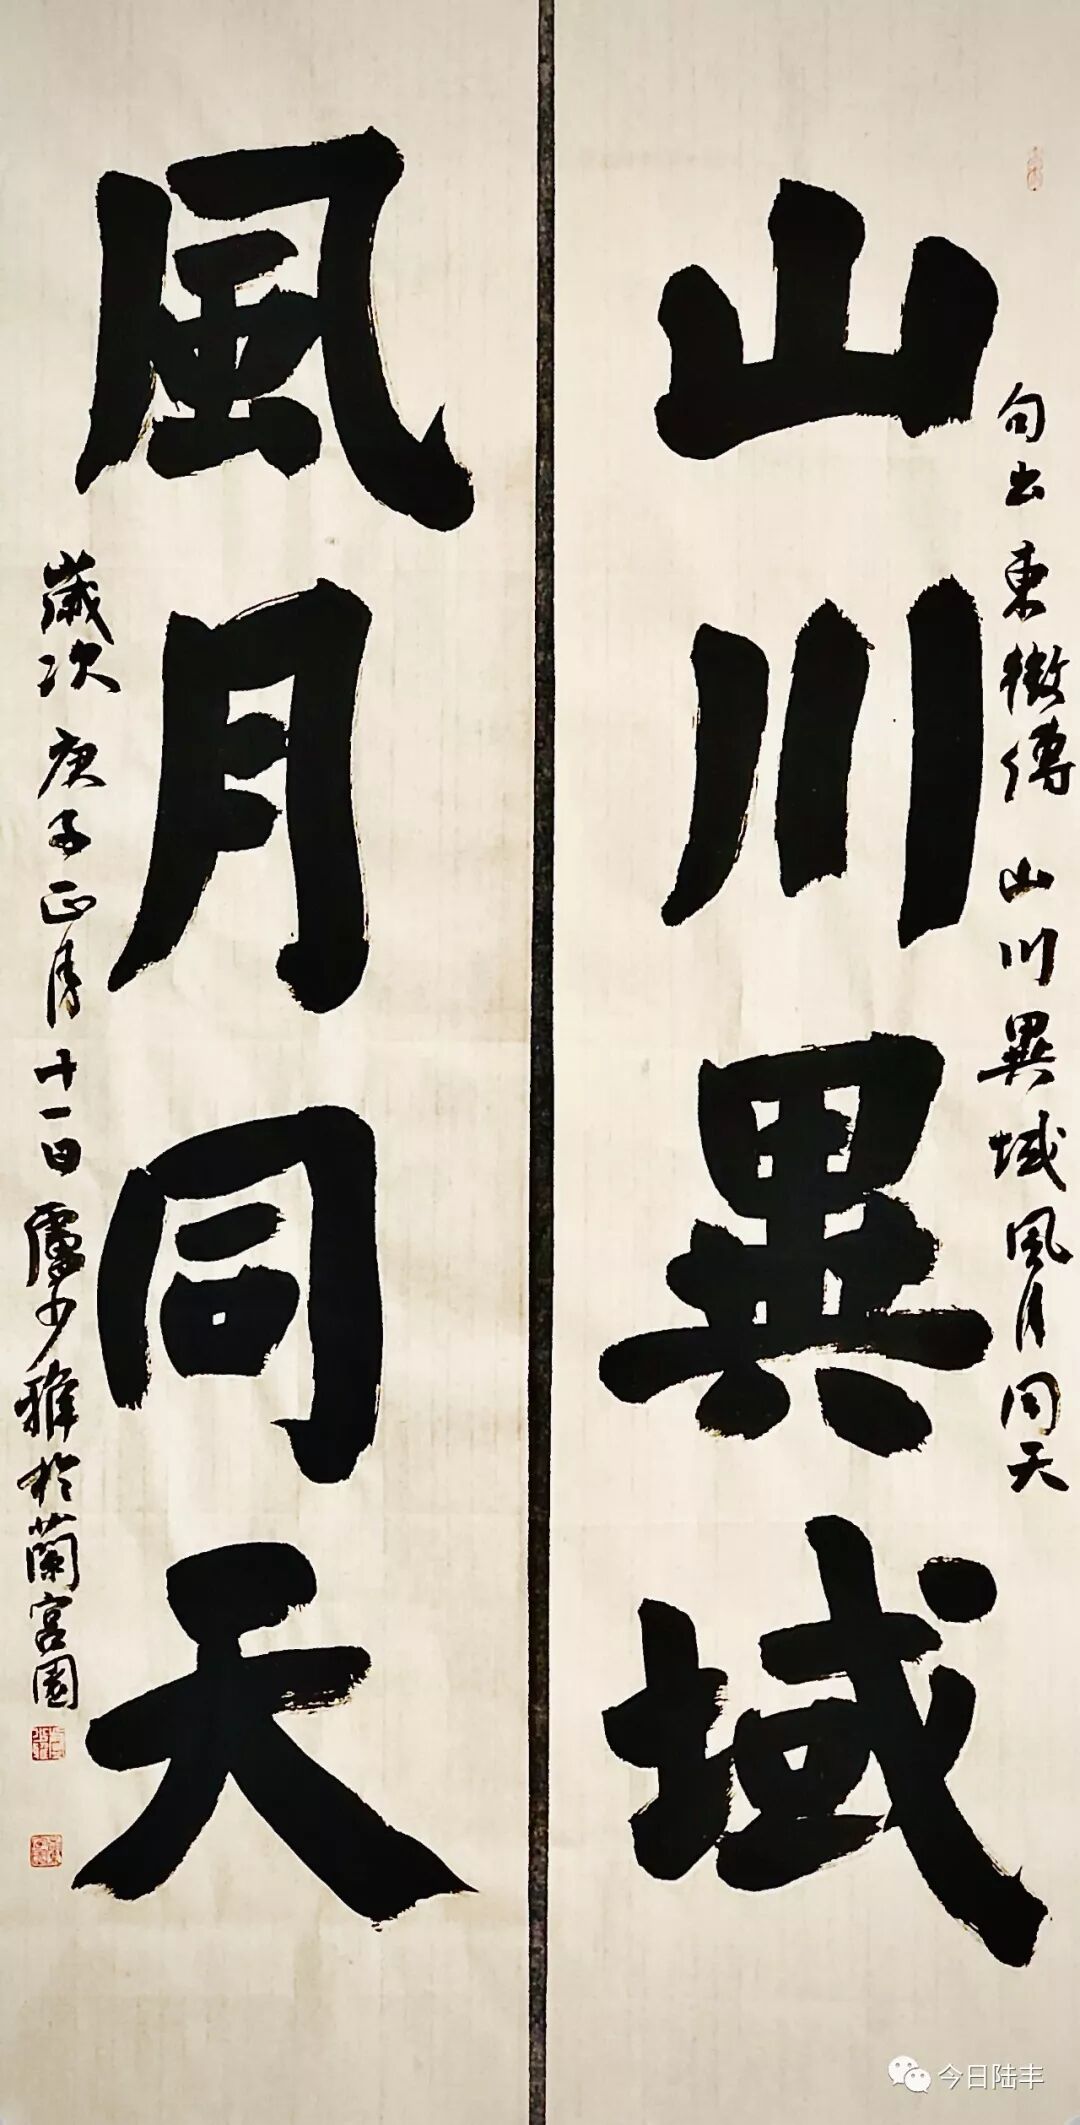 山川異域
句出東徵傳山川異域風月同天
風月同天
歲次庚子正月十一日盧少雅於蘭宮園
今日陆丰